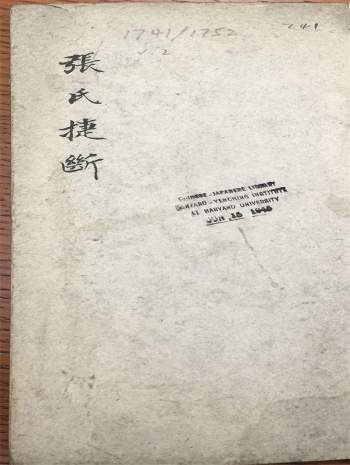 1741/1752
v.2
張氏捷斷
CHINESE-JAPANESE LIBRARY
HARVARD-YENCHING INSTITUTE
AT HARVARD UNIVERSITY
JUN 15 1948